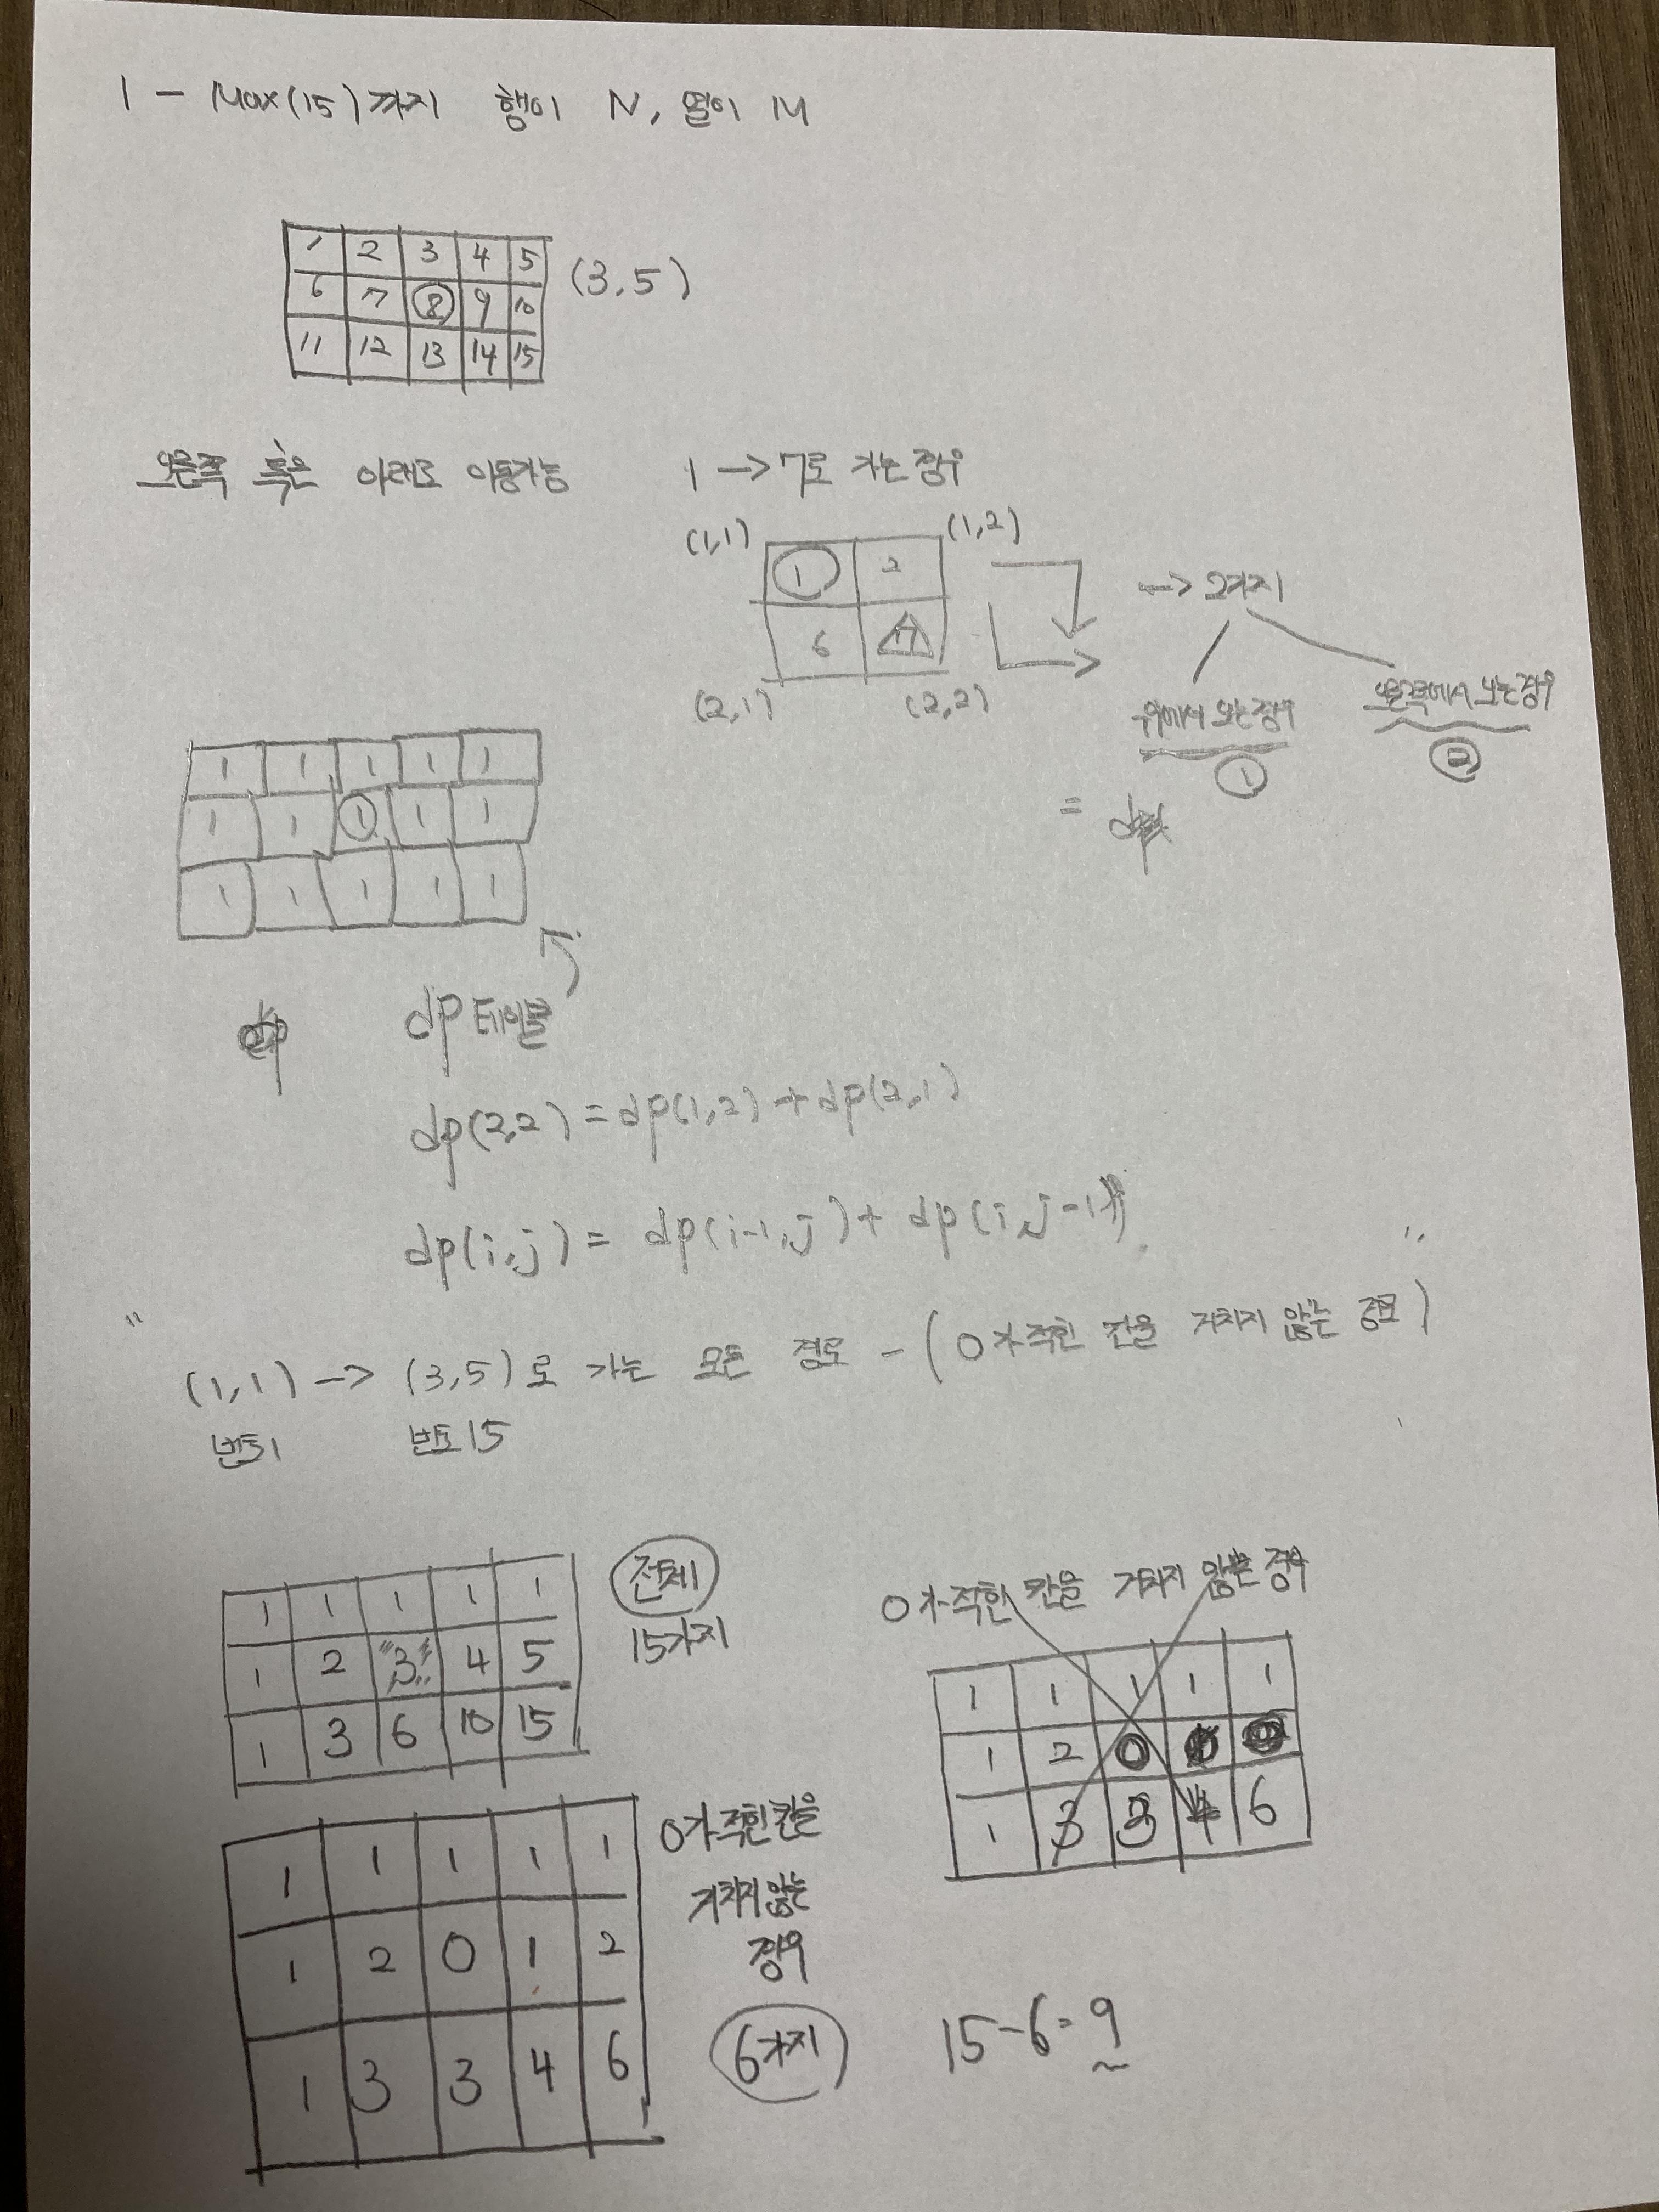 1 - Max(15)까지 행이 N, 열이 M
1 2 3 4 5
6 7 8 9 10
11 12 13 14 15
(3,5)
오른쪽 혹은 아래로 이동가능
1 -> 7로 가는 경우
(1,1) (1,2)
1 2
6 7
(2,1) (2,2)
-> 2가지
위에서 오는 경우
①
오른쪽에서 오는 경우
②
=
1 1 1 1 1
1 1 1 1 1
1 1 1 1 1
dp 테이블
dp(2,2) = dp(1,2) + dp(2,1)
dp(i,j) = dp(i-1,j) + dp(i,j-1)
" (1,1) -> (3,5)로 가는 모든 경로 - (0가 적힌 칸을 거치지 않는 경로) "
번호1 번호15
1 1 1 1 1
1 2 3 4 5
1 3 6 10 15
전체
15가지
0가 적힌 칸을 거치지 않는 경우
1 1 1 1 1
1 2 0
1 3 3 4 6
1 1 1 1 1
1 2 0 1 2
1 3 3 4 6
0가 적힌 칸을
거치지 않는
경우
6가지
15-6=9